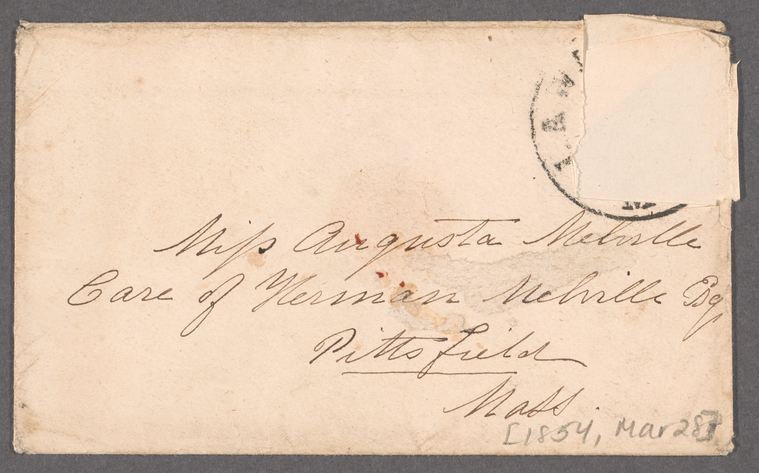 LAW
N.
Miss Augusta Melville
Care of Herman Melville Esq.
Pittsfield
Mass.
[1854, Mar 28?]